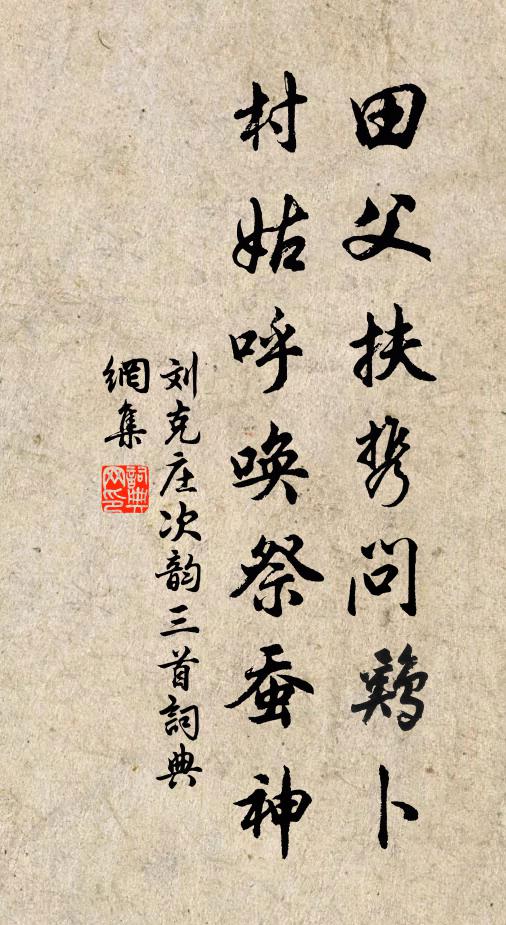 田父扶携問鷄卜
村姑呼唤祭蚕神
刘克庄次韵三首詞典
網集
詞典
网印